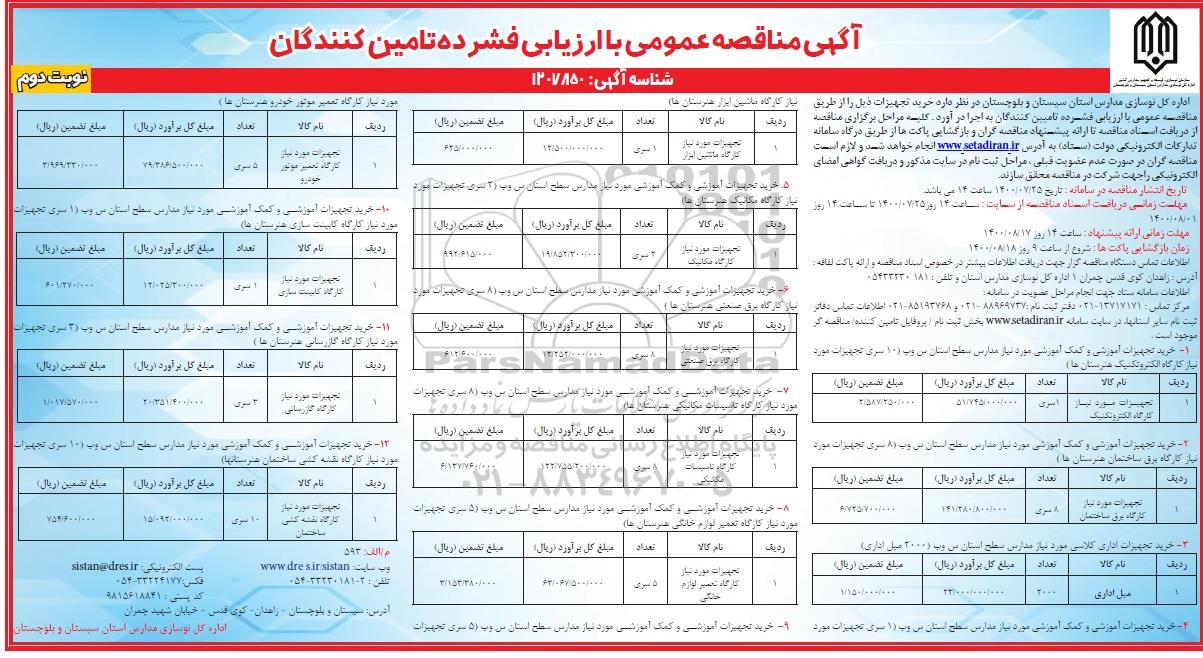 آگهی مناقصه عمومی با ارزیابی فشرده تامین کنندگان
شناسه آگهی: ۱۲۰۷۸۵۰
نوبت دوم
سازمان نوسازی، توسعه و تجهیز مدارس کشور
اداره کل نوسازی مدارس استان سیستان و بلوچستان
اداره کل نوسازی مدارس استان سیستان و بلوچستان در نظر دارد خرید تجهیزات ذیل را از طریق
مناقصه عمومی با ارزیابی فشرده تامیین کنندگان به اجرا در آورد . کلیه مراحل برگزاری مناقصه
از دریافت اسناد مناقصه تا ارائه پیشنهاد مناقصه گران و بازگشایی پاکت ها از طریق درگاه سامانه
تدارکات الکترونیکی دولت (ستاد) به آدرس www.setadiran.ir انجام خواهد شد و لازم است
مناقصه گران در صورت عدم عضویت قبلی ، مراحل ثبت نام در سایت مذکور و دریافت گواهی امضای
الکترونیکی را جهت شرکت در مناقصه محقق سازند.
تاریخ انتشار مناقصه در سامانه : تاریخ ۱۴۰۰/۰۷/۲۵ ساعت ۱۴ می باشد.
مهلت زمانی دریافت اسناد مناقصه از سایت : ساعت ۱۴ روز ۱۴۰۰/۰۷/۲۵ تا ساعت ۱۴ روز
۱۴۰۰/۰۸/۰۱
مهلت زمانی ارائه پیشنهاد : ساعت ۱۴ روز ۱۴۰۰/۰۸/۱۷
زمان بازگشایی پاکت ها : شروع از ساعت ۹ روز ۱۴۰۰/۰۸/۱۸
اطلاعات تماس دستگاه مناقصه گزار جهت دریافت اطلاعات بیشتر در خصوص اسناد مناقصه و ارائه پاکت لفافه :
آدرس : زاهدان کوی قدس چمران ۱ اداره کل نوسازی مدارس استان و تلفن : ۱۸۱ ۰۵۴۳۳۲۳۰
اطلاعات سامانه ستاد جهت انجام مراحل عضویت در سامانه :
مرکز تماس : ۱۳۷۱۷۱۷۱-۰۲۱ دفتر ثبت نام :۸۸۹۶۹۷۳۷-۰۲۱ و ۸۵۱۹۳۷۶۸-۰۲۱ اطلاعات تماس دفاتر
ثبت نام سایر استانها، در سایت سامانه www.setadiran.ir بخش ثبت نام / پروفایل تامین کننده/ مناقصه گر
موجود است .
۱- خرید تجهیزات آموزشی و کمک آموزشی مورد نیاز مدارس سطح استان س وب (۱۰ سری تجهیزات مورد
نیاز کارگاه الکتروتکنیک هنرستان ها )
ردیف نام کالا تعداد مبلغ کل برآورد (ریال) مبلغ تضمین (ریال)
۱ تجهیزات مورد نیاز کارگاه الکتروتکنیک ۱سری ۵۱/۷۴۵/۰۰۰/۰۰۰ ۲/۵۸۷/۲۵۰/۰۰۰
۲- خرید تجهیزات آموزشی و کمک آموزشی مورد نیاز مدارس سطح استان س وب (۸ سری تجهیزات مورد
نیاز کارگاه برق ساختمان هنرستان ها )
ردیف نام کالا تعداد مبلغ کل برآورد (ریال) مبلغ تضمین (ریال)
۱ تجهیزات مورد نیاز کارگاه برق ساختمان ۸ سری ۱۴۱/۲۸۰/۸۰۰/۰۰۰ ۶/۷۲۵/۷۰۰/۰۰۰
۳- خرید تجهیزات اداری کلاسی مورد نیاز مدارس سطح استان س وب (۲۰۰۰ مبل اداری)
ردیف نام کالا تعداد مبلغ کل برآورد (ریال) مبلغ تضمین (ریال)
۱ مبل اداری ۲۰۰۰ ۲۳/۰۰۰/۰۰۰/۰۰۰ ۱/۱۵۰/۰۰۰/۰۰۰
۴- خرید تجهیزات آموزشی و کمک آموزشی مورد نیاز مدارس سطح استان س وب (۱ سری تجهیزات مورد
نیاز کارگاه ماشین ابزار هنرستان ها)
ردیف نام کالا تعداد مبلغ کل برآورد (ریال) مبلغ تضمین (ریال)
۱ تجهیزات مورد نیاز کارگاه ماشین ابزار ۱ سری ۱۲/۵۰۰/۰۰۰/۰۰۰ ۶۲۵/۰۰۰/۰۰۰
۵. خرید تجهیزات آموزشی و کمک آموزشی مورد نیاز مدارس سطح استان س وب (۲ سری تجهیزات مورد
نیاز کارگاه مکانیک هنرستان ها)
ردیف نام کالا تعداد مبلغ کل برآورد (ریال) مبلغ تضمین (ریال)
۱ تجهیزات مورد نیاز کارگاه مکانیک ۲ سری ۱۹/۸۵۲/۳۰۰/۰۰۰ ۹۹۲/۶۱۵/۰۰۰
۶- خرید تجهیزات آموزشی و کمک آموزشی مورد نیاز مدارس سطح استان س وب (۸ سری تجهیزات مورد
نیاز کارگاه برق صنعتی هنرستان ها )
ردیف نام کالا تعداد مبلغ کل برآورد (ریال) مبلغ تضمین (ریال)
۱ تجهیزات مورد نیاز کارگاه برق صنعتی ۸ سری ۱۲/۲۵۲/۰۰۰/۰۰۰ ۶۱۲/۶۰۰/۰۰۰
۷- خرید تجهیزات آموزشی و کمک آموزشی مورد نیاز مدارس سطح استان س وب (۸ سری تجهیزات
مورد نیاز کارگاه تاسیسات مکانیکی هنرستان ها)
ردیف نام کالا تعداد مبلغ کل برآورد (ریال) مبلغ تضمین (ریال)
۱ تجهیزات مورد نیاز کارگاه تاسیسات مکانیکی ۸ سری ۱۲۲/۷۵۵/۲۰۰/۰۰۰ ۶/۱۳۷/۷۶۰/۰۰۰
۸- خرید تجهیزات آموزشی و کمک آموزشی مورد نیاز مدارس سطح استان س وب (۵ سری تجهیزات
مورد نیاز کارگاه تعمیر لوازم خانگی هنرستان ها)
ردیف نام کالا تعداد مبلغ کل برآورد (ریال) مبلغ تضمین (ریال)
۱ تجهیزات مورد نیاز کارگاه تعمیر لوازم خانگی ۵ سری ۶۳/۰۶۷/۵۰۰/۰۰۰ ۳/۱۵۳/۳۸۰/۰۰۰
۹- خرید تجهیزات آموزشی و کمک آموزشی مورد نیاز مدارس سطح استان س وب (۵ سری تجهیزات
مورد نیاز کارگاه تعمیر موتور خودرو هنرستان ها )
ردیف نام کالا تعداد مبلغ کل برآورد (ریال) مبلغ تضمین (ریال)
۱ تجهیزات مورد نیاز کارگاه تعمیر موتور خودرو ۵ سری ۷۹/۳۸۶/۵۰۰/۰۰۰ ۳/۹۶۹/۳۳۰/۰۰۰
۱۰- خرید تجهیزات آموزشی و کمک آموزشی مورد نیاز مدارس سطح استان س وب (۱ سری تجهیزات
مورد نیاز کارگاه کابینت سازی هنرستان ها)
ردیف نام کالا تعداد مبلغ کل برآورد (ریال) مبلغ تضمین (ریال)
۱ تجهیزات مورد نیاز کارگاه کابینت سازی ۱ سری ۱۲/۰۲۵/۳۰۰/۰۰۰ ۶۰۱/۲۷۰/۰۰۰
۱۱- خرید تجهیزات آموزشی و کمک آموزشی مورد نیاز مدارس سطح استان س وب (۳ سری تجهیزات
مورد نیاز کارگاه گازرسانی هنرستان ها )
ردیف نام کالا تعداد مبلغ کل برآورد (ریال) مبلغ تضمین (ریال)
۱ تجهیزات مورد نیاز کارگاه گازرسانی ۳ سری ۲۰/۳۵۱/۴۰۰/۰۰۰ ۱/۰۱۷/۵۷۰/۰۰۰
۱۲- خرید تجهیزات آموزشی و کمک آموزشی مورد نیاز مدارس سطح استان س وب (۱۰ سری تجهیزات
مورد نیاز کارگاه نقشه کشی ساختمان هنرستانها)
ردیف نام کالا تعداد مبلغ کل برآورد (ریال) مبلغ تضمین (ریال)
۱ تجهیزات مورد نیاز کارگاه نقشه کشی ساختمان ۱۰ سری ۱۵/۰۹۲/۰۰۰/۰۰۰ ۷۵۴/۶۰۰/۰۰۰
م/الف: ۵۹۳
وب سایت: www.dre s.ir/sistan پست الکترونیکی: sistan@dres.ir
تلفن : ۲-۳۳۲۳۰۱۸۱-۰۵۴ فکس:۳۳۲۲۴۱۷۷-۰۵۴
کد پستی : ۹۸۱۵۶۱۸۸۴۱
آدرس: سیستان و بلوچستان - زاهدان- کوی قدس - خیابان شهید چمران
اداره کل نوسازی مدارس استان سیستان و بلوچستان
ParsNamadData
پایگاه اطلاع رسانی مناقصه و مزایده
۰۲۱-۸۸۳۴۹۶۷۰-۵